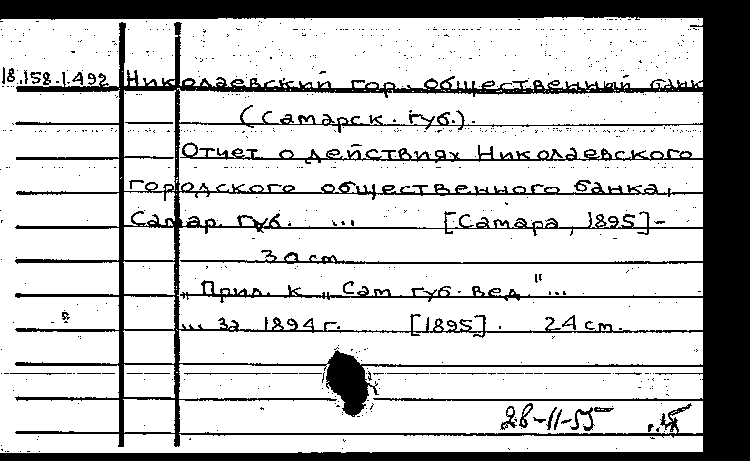 18.158.1.492 Николаевский гор. общественный банк
(Самарск. губ.).
Отчет о действиях Николаевского
городского общественного банка,
Самар. губ. ... [Самара, 1895]-
30 cm.
„Прил. к „Сам. губ. вед."...
... за 1894 г. [1895]. 24 cm.
28-11-55